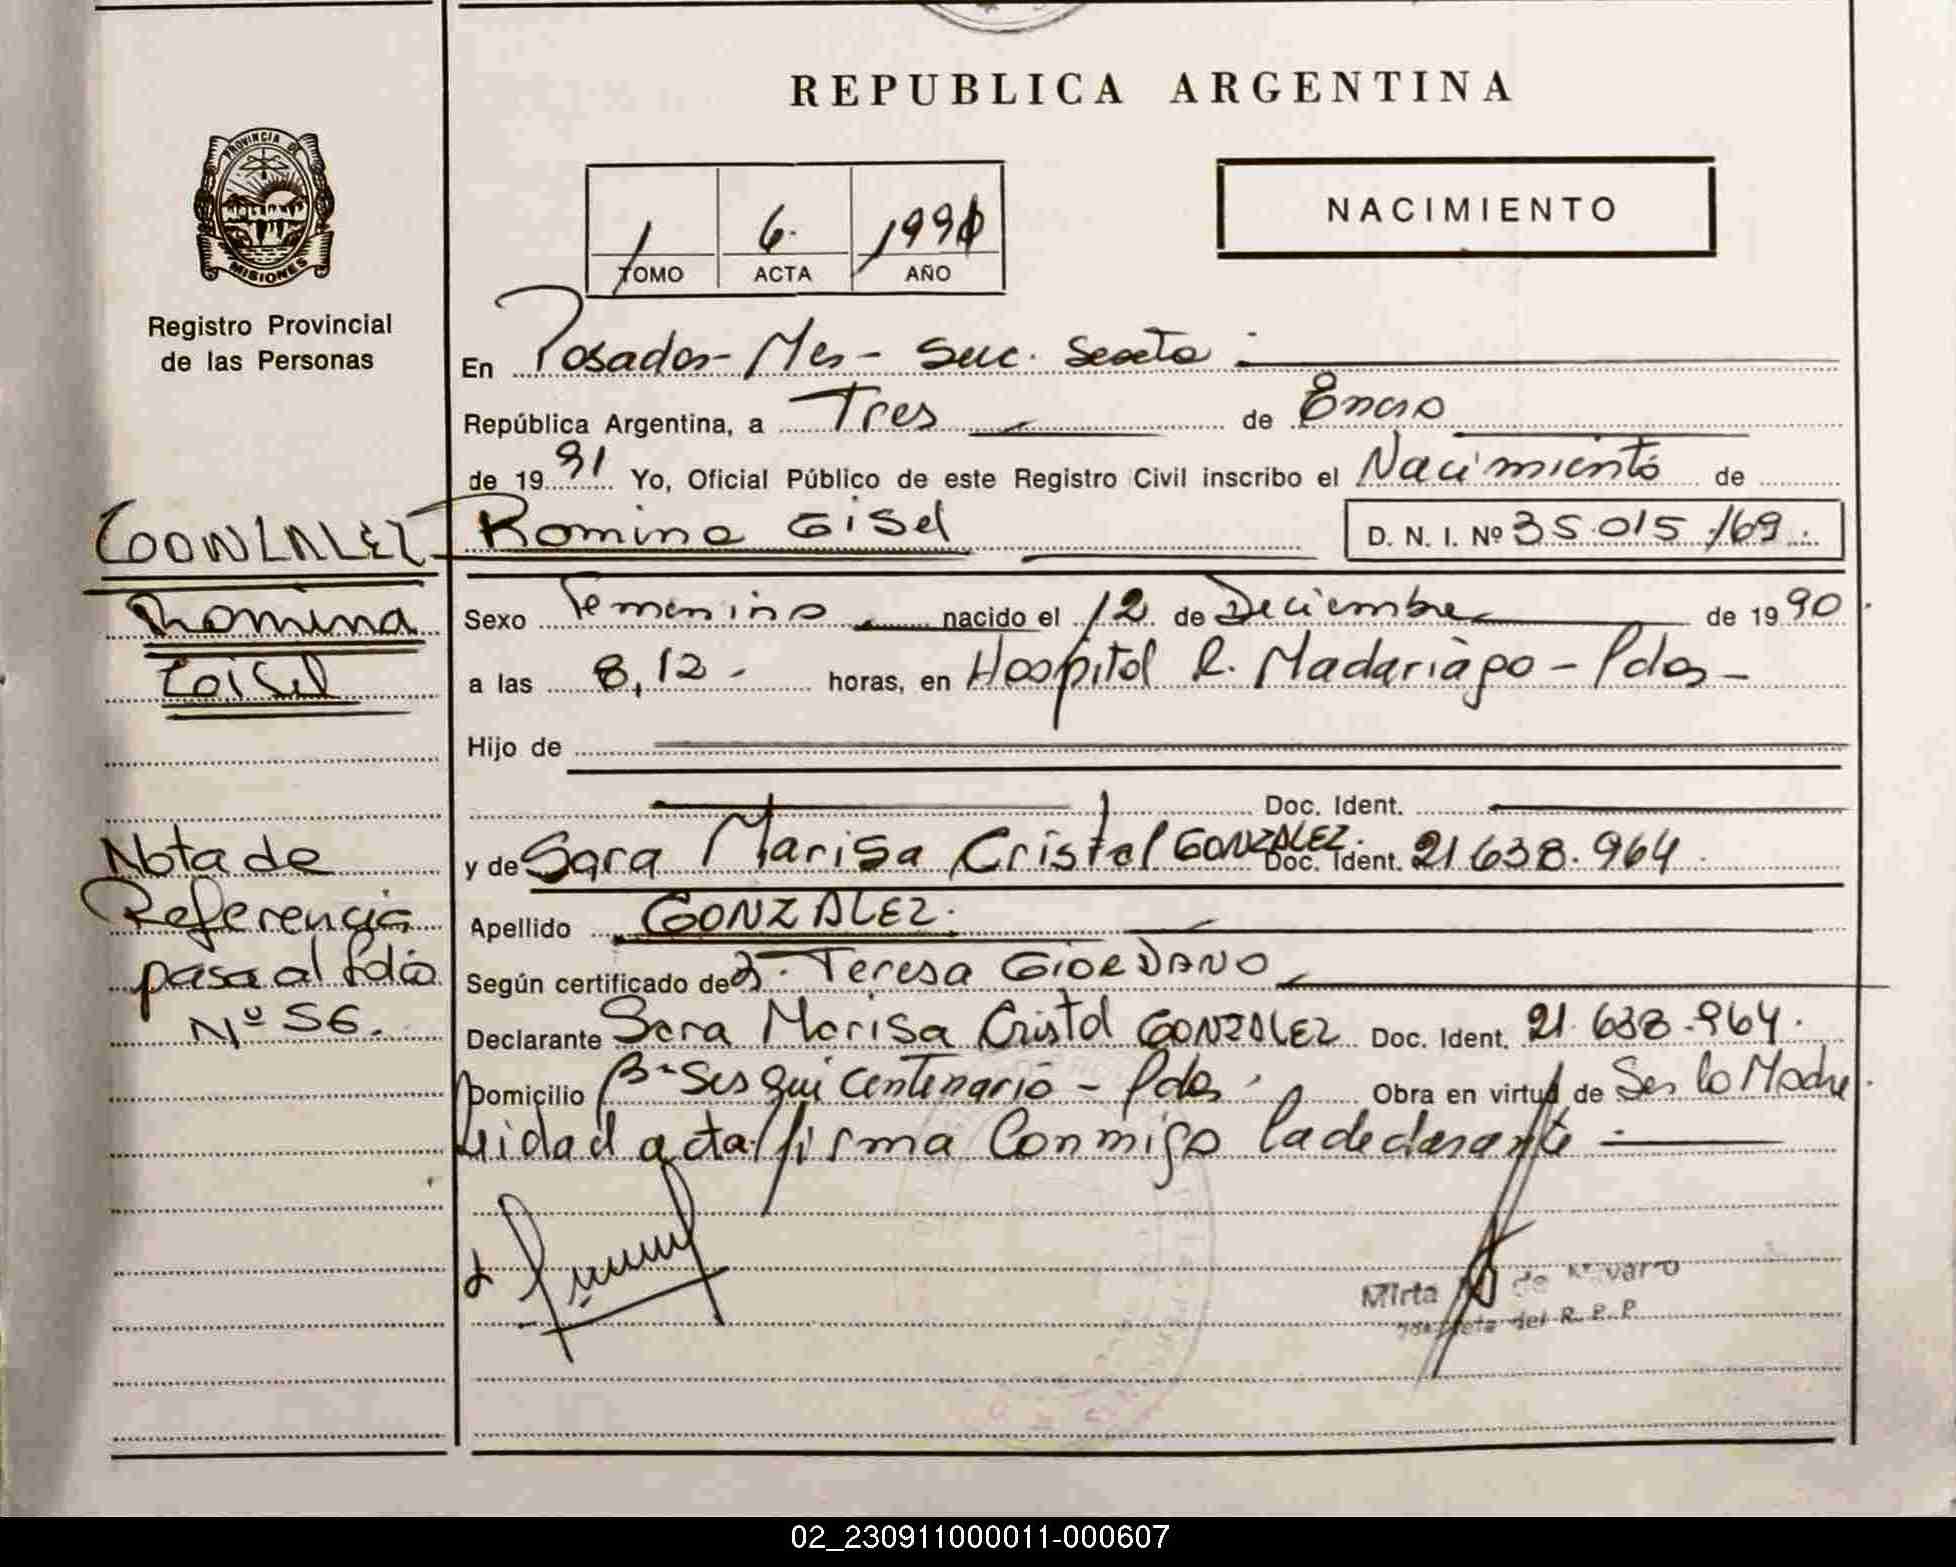 REPUBLICA ARGENTINA
PROVINCIA DE
MISIONES
Registro Provincial
de las Personas
1 6. 1991
TOMO ACTA AÑO
NACIMIENTO
En Posadas - Mes - Suc. Sexta
República Argentina, a Tres de Enero
de 1991 Yo, Oficial Público de este Registro Civil inscribo el Nacimiento de
Romina Gisel D. N. I. Nº 35.015.169.
Sexo Femenino nacido el 12 de Diciembre de 1990
a las 8,12 - horas, en Hospital R. Madariaga - Pdas -
Hijo de
Doc. Ident.
y de Sara Marisa Cristal GONZALEZ. Doc. Ident. 21.638.964
Apellido GONZALEZ.
Según certificado de Teresa GIORDANO
Declarante Sara Marisa Cristal GONZALEZ Doc. Ident. 21.638.964.
Domicilio Bº Sesquicentenario - Pdas. Obra en virtud de Ser la Madre
Leida el acta firma conmigo la declarante
Mirta de Navarro
del R.P.P.
GONZALEZ
Romina
Gisel
Nota de
Referencia
pasa al folio
Nº 56.
02_230911000011-000607